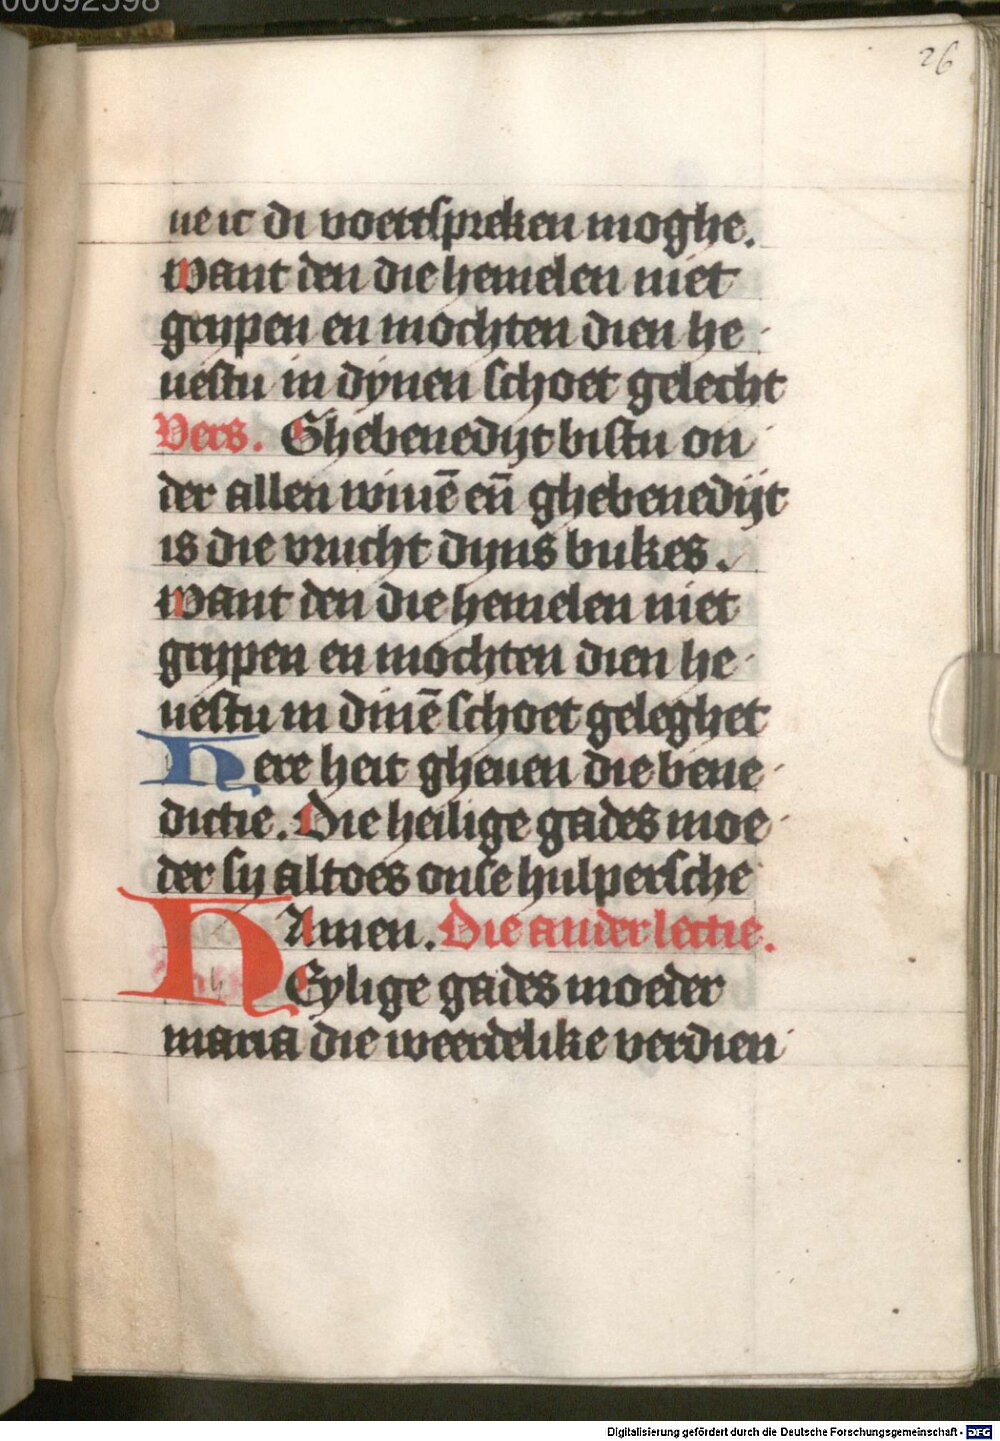 00092598
26
ue ic di voertspreken moghe.
Want den die hemelen niet
grypen en mochten dien he
uestu in dynen schoet gelecht
Vers. Ghebenedijt bistu on
der allen wiuē en̄ ghebenedijt
is die vrucht dyns bukes.
Want den die hemelen niet
grypen en mochten dien he
uestu in dinē schoet geleghet
Here heit gheuen die bene
dictie. Die heilige gades moe
der sy altoes onse hulpersche
Amen. Die ander lectie.
HEylige gades moeder
maria die weerdelike verdien
Digitalisierung gefördert durch die Deutsche Forschungsgemeinschaft - DFG